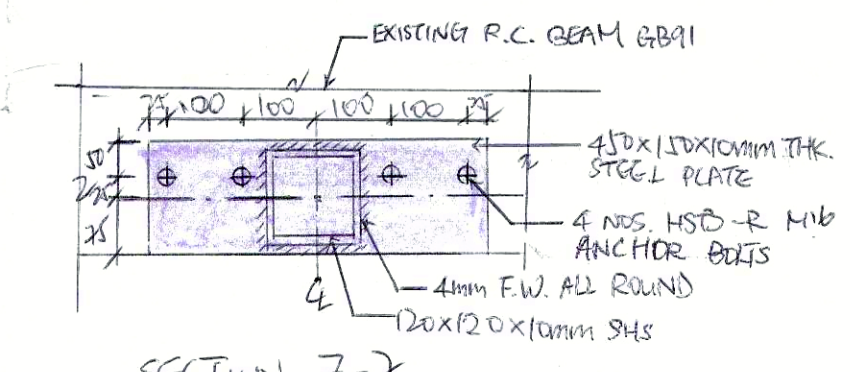 EXISTING R.C. BEAM GB91
25 100 100 100 100 25
50
25
75
450x150x10mm THK.
STEEL PLATE
4 NOS. HSB-R M16
ANCHOR BOLTS
4mm F.W. ALL ROUND
120x120x10mm SHS
SECTION